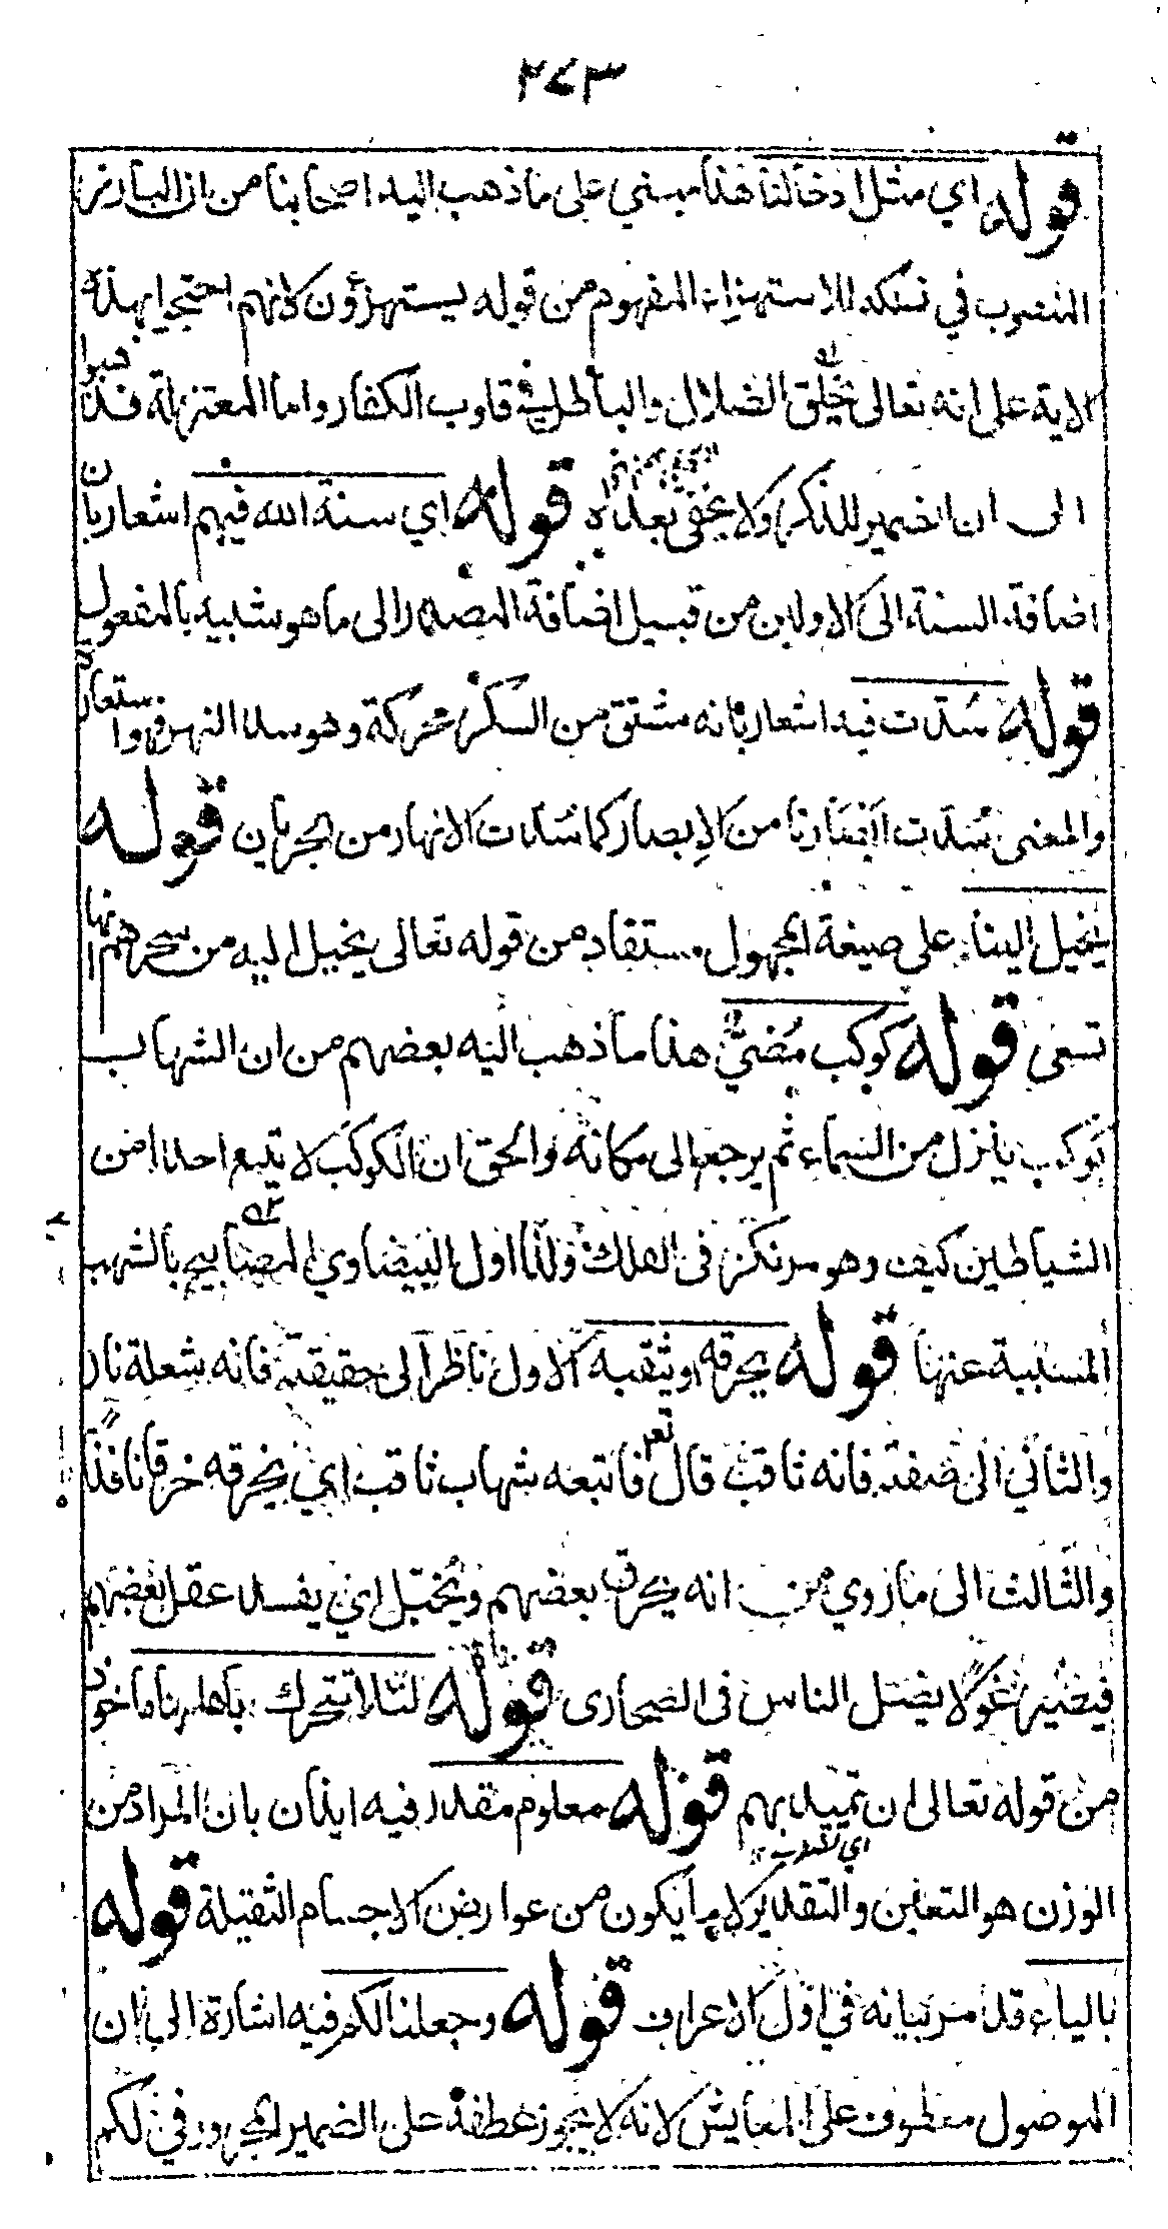 ٢٧٣
قوله اي مثل ادخالنا هذا مبني على ما ذهب اليه اصحابنا من ان البارز
المنصوب في نسلكه للاستهزاء المفهوم من قوله يستهزؤن لانهم احتجوا بهذه
الاية على انه تعالى يخلق الضلال والباطل في قلوب الكفار واما المعتزلة فذهبوا
الى ان الضمير للذكر ولا يخفى بعده قوله اي سنة الله فيهم اشعار بان
اضافة السنة الى الاولين من قبيل اضافة المصدر الى ما هو شبيه بالمفعول
قوله سُدّت فيه اشعار بانه مشتق من السكر محركة وهو سد النهر واستعارة
والمعنى سُدّت ابصارنا من الابصار كما سُدّت الانهار من الجريان قوله
يخيل الينا على صيغة المجهول مستفاد من قوله تعالى يخيل اليه من سحرهم انها
تسعى قوله كوكب مُضيٌّ هذا ما ذهب اليه بعضهم من ان الشهاب
كوكب ينزل من السماء ثم يرجع الى مكانه والحق ان الكوكب لا يتبع احدا من
الشياطين كيف وهو مرتكز فى الفلك ولذا اول البيضاوي المصابيح بالشهب
المسببة عنها قوله يحرقه او يثقبه الاول ناظر الى حقيقته فانه شعلة نار
والثاني الى صفته فانه ثاقب قال تعـ فاتبعه شهاب ثاقب اي يخرقه خرقا نافذا
والثالث الى ما روي من انه يحرق بعضهم ويُخبّل اي يفسد عقل بعضهم
فيصير غولا يضل الناس فى الصحارى قوله لئلا تتحرك باهلها ماخوذ
من قوله تعالى ان تميد بهم قوله معلوم مقدر فيه ايذان بان المراد من
الوزن هو التعين والتقدير لا ما يكون من عوارض الاجسام الثقيلة قوله
بالياء قد مر بيانه في اول الاعراف قوله وجعلنا لكم فيه اشارة الى ان
الموصول معطوف على المعايش لانه لا يجوز عطفه على الضمير المجرور في لكم